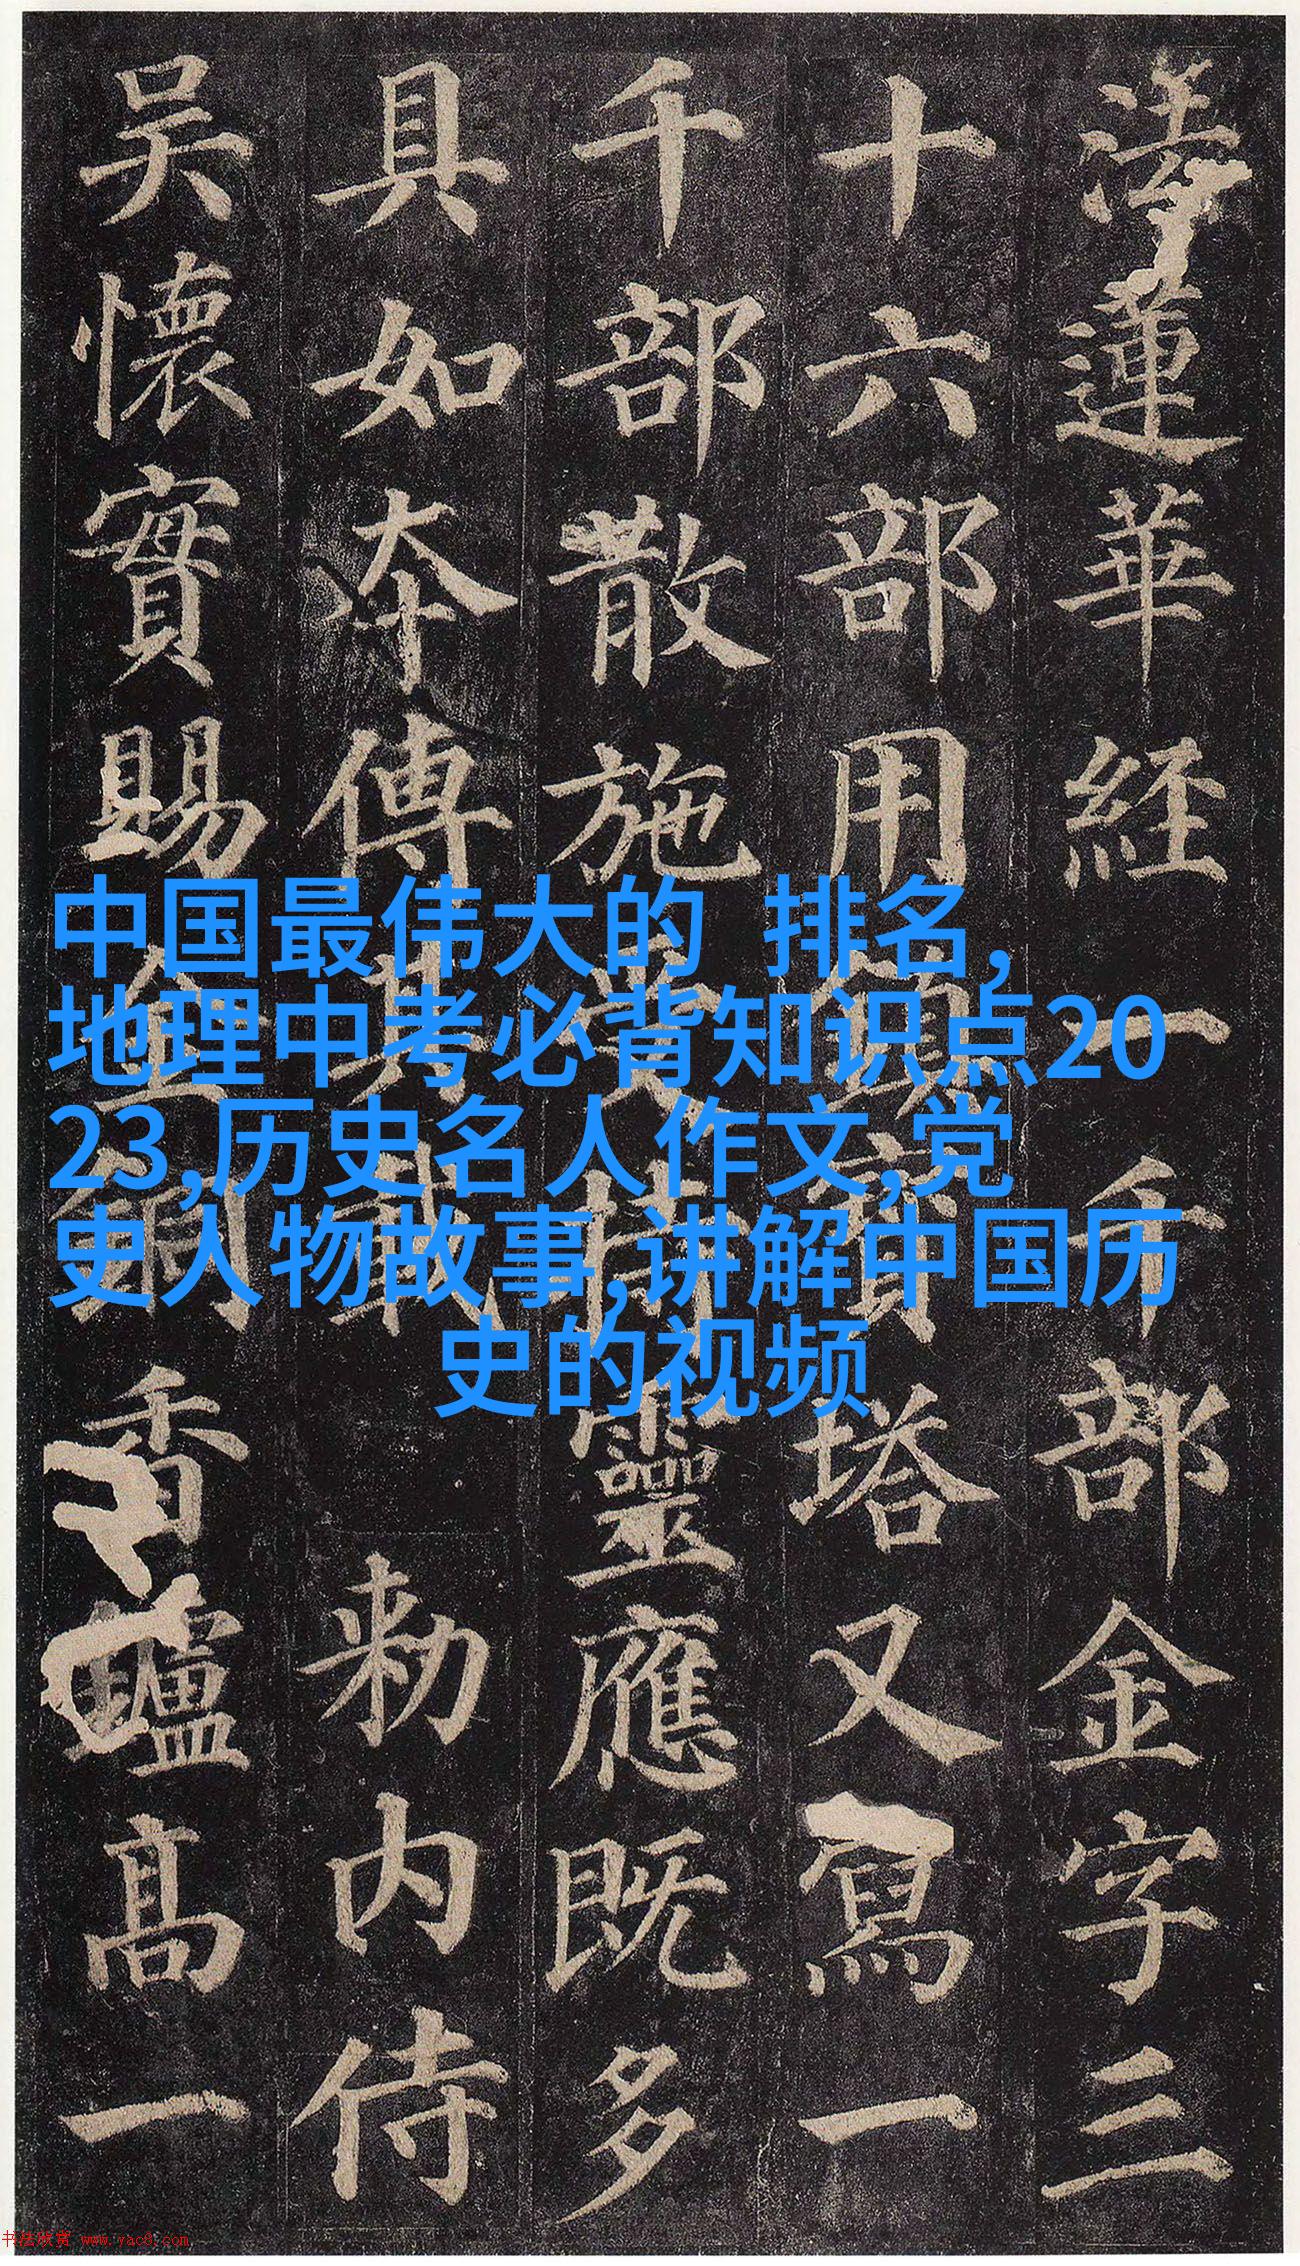 法蓮華経一千部金字三
十六部用鎮寶塔又寫一
千部散施受持靈應既多
具如本傳其載 勅内侍
吴懷實賜金銅香鑪髙一
中国最伟大的 排名,
地理中考必背知识点20
23,历史名人作文,党
史人物故事,讲解中国历
史的视频
书法欣赏 www.yac8.com